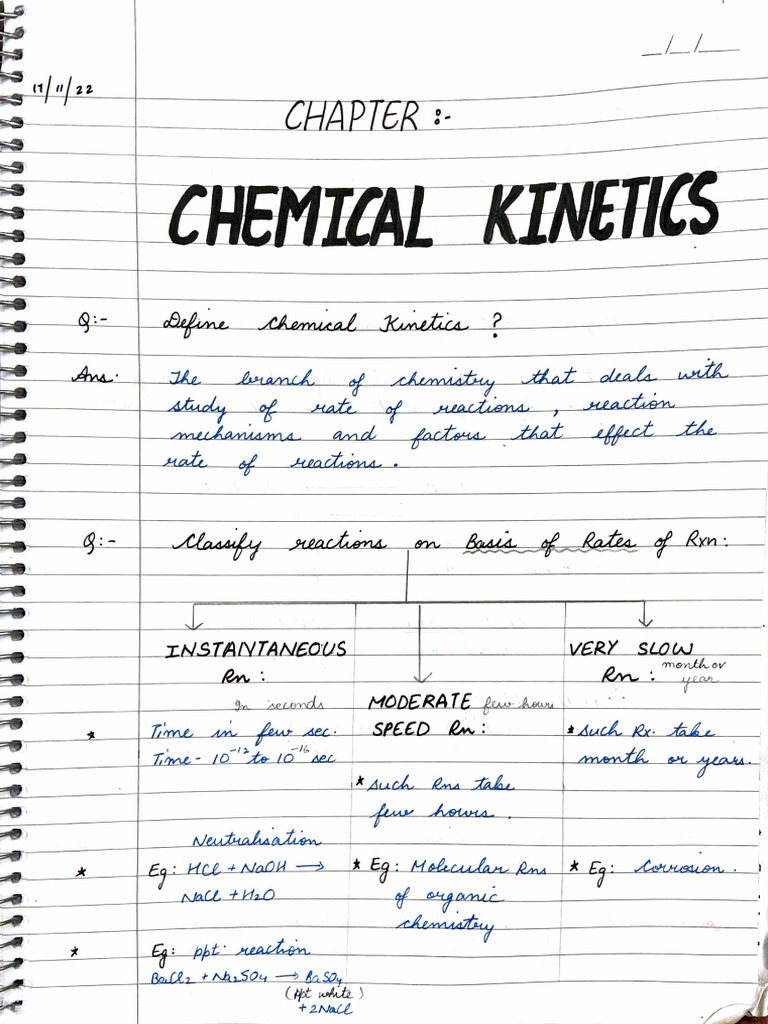 _/_/_
17/11/22
CHAPTER :-
CHEMICAL KINETICS
Q:- Define Chemical Kinetics ?
Ans. The branch of chemistry that deals with
study of rate of reactions , reaction
mechanisms and factors that effect the
rate of reactions .
Q:- Classify reactions on Basis of Rates of Rxn :
INSTANTANEOUS
Rn :
In seconds
* Time in few sec.
Time - 10⁻¹² to 10⁻¹⁶ sec
Neutralisation
* Eg : HCl + NaOH →
NaCl + H2O
* Eg : ppt. reaction
BaCl2 + Na2SO4 → BaSO4
(ppt white)
+ 2NaCl
MODERATE few hours
SPEED Rn :
* Such Rns take
few hours .
* Eg : Molecular Rns
of organic
chemistry
VERY SLOW
Rn : month or
year
* Such Rx. take
month or years.
* Eg : Corrosion .